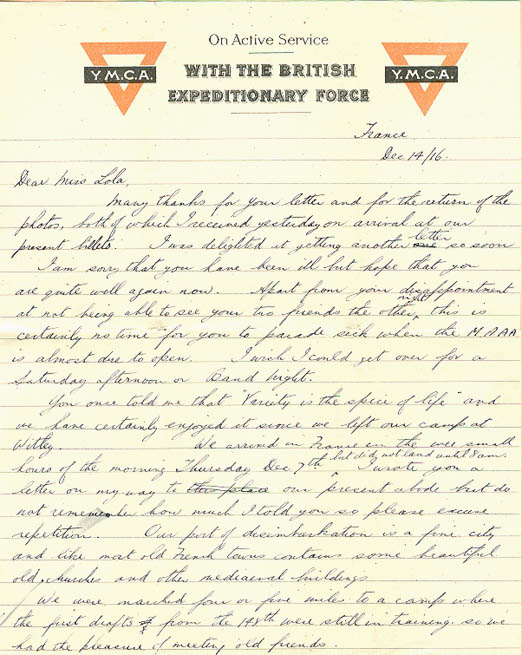 On Active Service
Y.M.C.A. WITH THE BRITISH Y.M.C.A.
EXPEDITIONARY FORCE
France
Dec 14/16.
Dear Miss Lola,
Many thanks for your letter and for the return of the
photos, both of which I received yesterday on arrival at our
present billets. I was delighted at getting another one letter so soon
I am sorry that you have been ill but hope that you
are quite well again now. Apart from your disappointment
at not being able to see your two friends the other night, this is
certainly no time for you to parade sick when the M.A.A.A
is almost due to open. I wish I could get over for a
Saturday afternoon or Band Night.
You once told me that "Variety is the spice of life" and
we have certainly enjoyed it since we left our camp at
Witley. We arrived in France in the wee small
hours of the morning Thursday Dec 7th but did not land until 8 am. I wrote you a
letter on my way to this place our present abode but do
not remember how much I told you so please excuse
repetition. Our port of disembarkation is a fine city
and like most old French towns contains some beautiful
old churches and other mediaeval buildings
We were marched four or five miles to a camp where
the first drafts from the 148th were still in training so we
had the pleasure of meeting old friends.